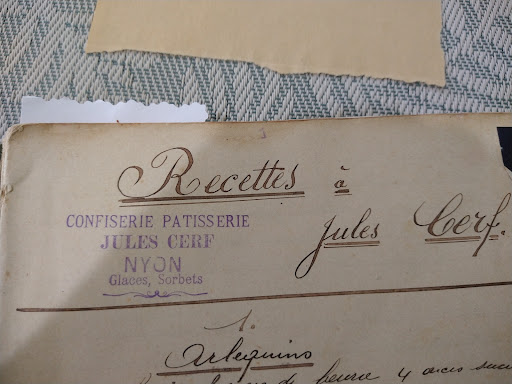 Recettes à
Jules Cerf.
CONFISERIE PATISSERIE
JULES CERF
NYON
Glaces, Sorbets
1.
Arlequins
de beurre 4 onces